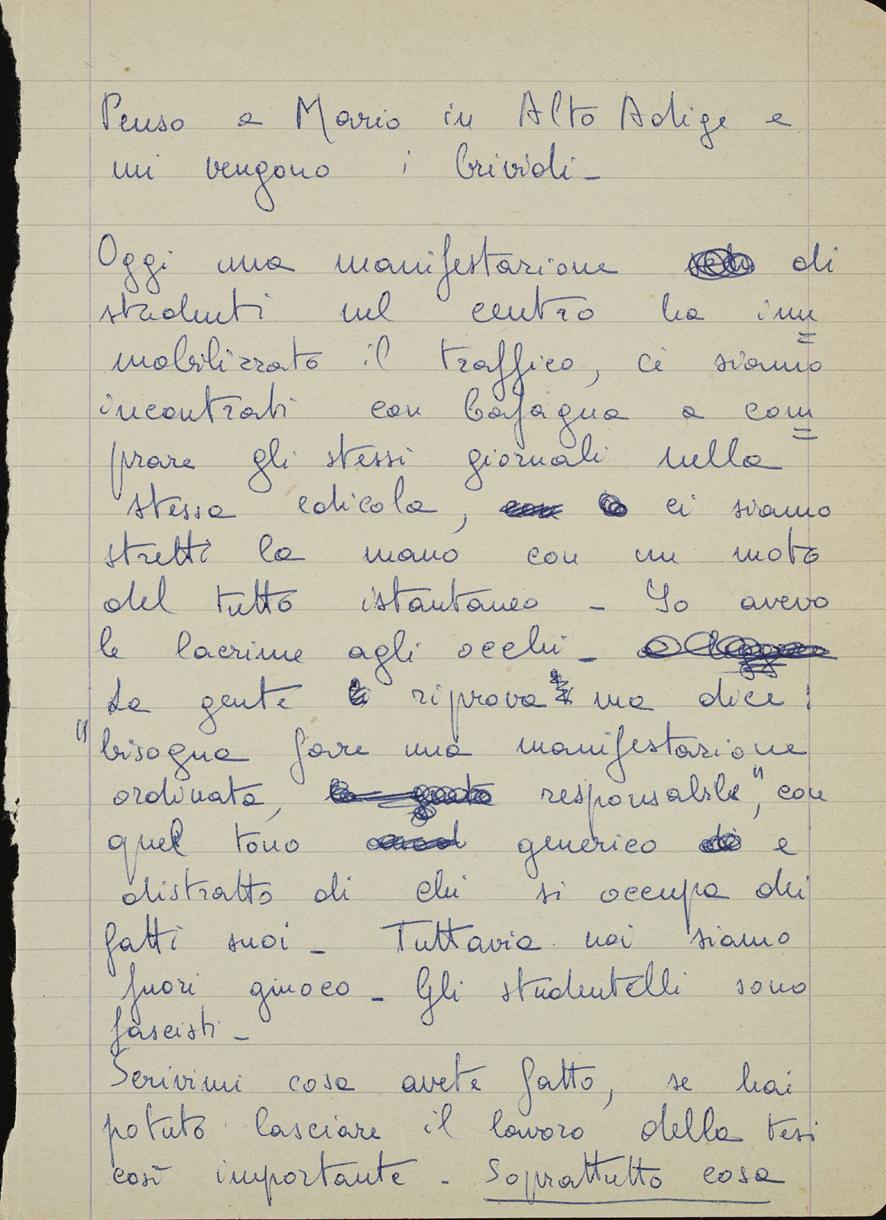 Penso a Mario in Alto Adige e
mi vengono i brividi –
Oggi una manifestazione di
studenti nel centro ha im=
mobilizzato il traffico, ci siamo
incontrati con Cafagna a com=
prare gli stessi giornali nella
stessa edicola, ci siamo
stretti la mano con un moto
del tutto istantaneo – Io avevo
le lacrime agli occhi –
La gente riprova ma dice:
"bisogna fare una manifestazione
ordinata, responsabile", con
quel tono generico e
distratto di chi si occupa dei
fatti suoi – Tuttavia noi siamo
fuori giuoco – Gli studentelli sono
fascisti –
Scrivimi cosa avete fatto, se hai
potuto lasciare il lavoro della tesi
così importante – Soprattutto cosa